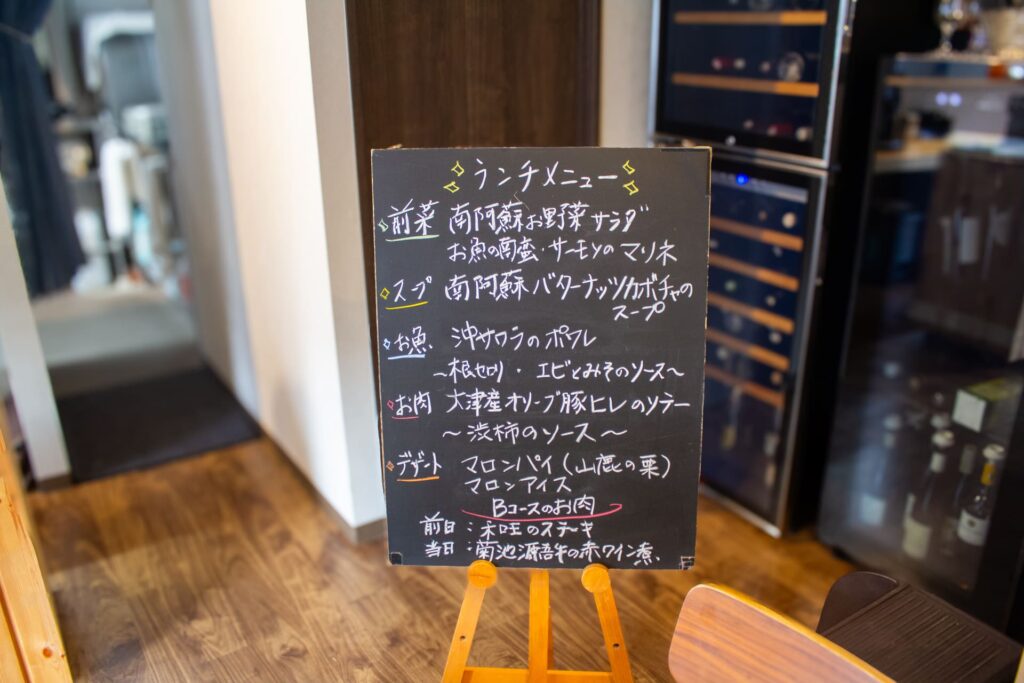 ランチメニュー
前菜 南阿蘇お野菜サラダ
お魚の南蛮・サーモンのマリネ
スープ 南阿蘇バターナッツカボチャの
スープ
お魚 沖サワラのポワレ
~根セロリ・エビとみそのソース~
お肉 大津産オリーブ豚ヒレのソテー
~渋柿のソース~
デザート マロンパイ(山鹿の栗)
マロンアイス
Bコースのお肉
前日:和王のステーキ
当日:菊池源吾牛の赤ワイン煮、